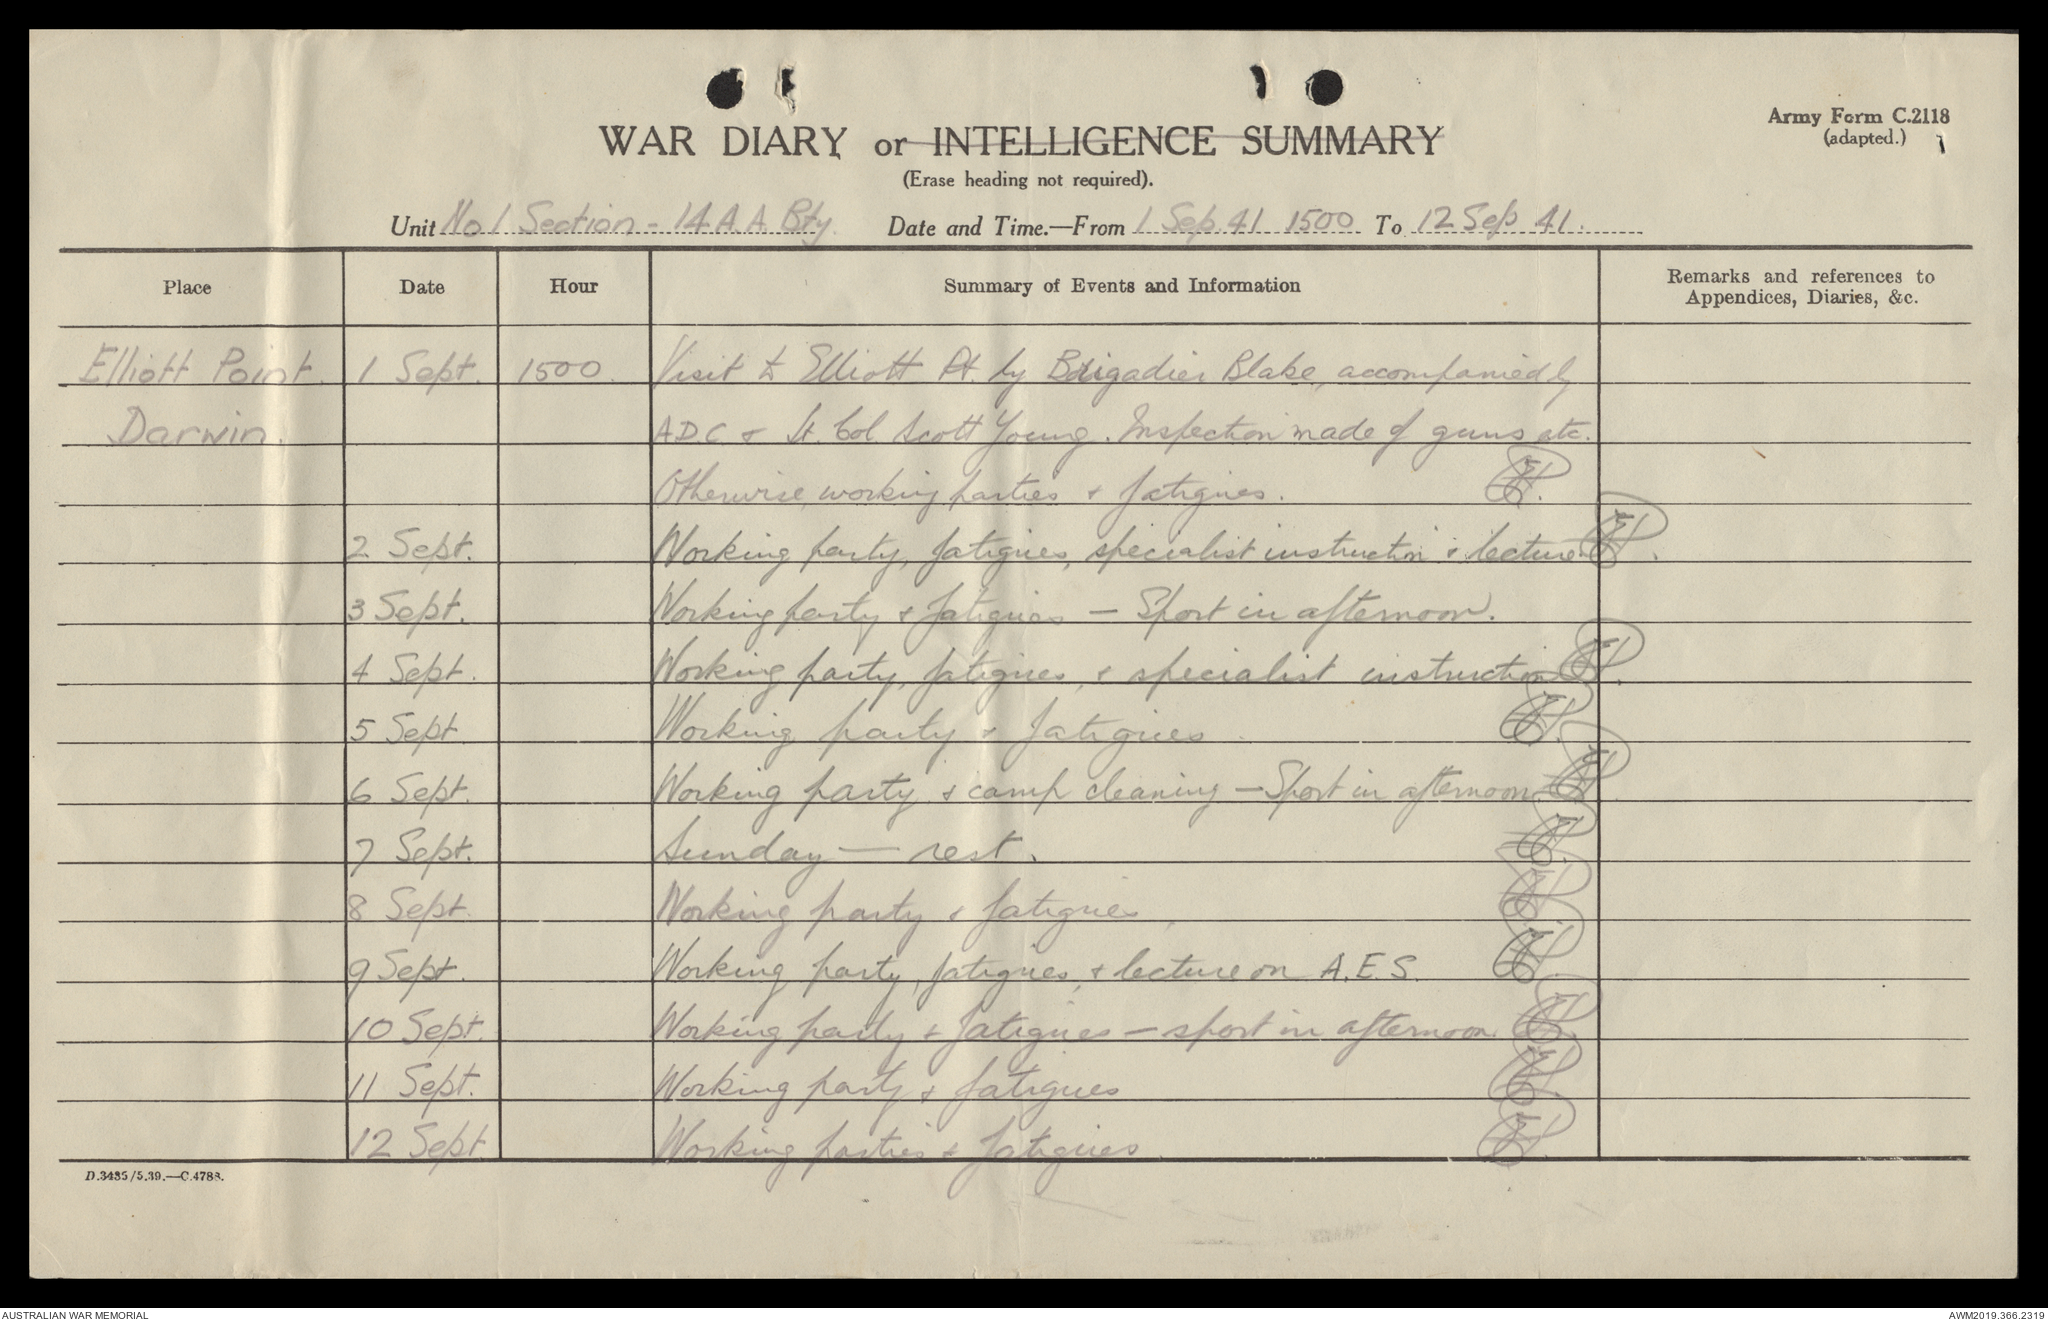 Army Form C.2118
(adapted.) 1
WAR DIARY or INTELLIGENCE SUMMARY
(Erase heading not required).
Unit No 1 Section - 14 A.A. Bty. Date and Time.—From 1 Sep. 41 1500 To 12 Sep 41.
Place Date Hour Summary of Events and Information Remarks and references to
Appendices, Diaries, &c.
Elliott Point. 1 Sept. 1500. Visit to Elliott Pt. by Brigadier Blake, accompanied by
Darwin. A.D.C. & Lt. Col Scott Young. Inspection made of guns etc.
Otherwise, working parties & fatigues.
2 Sept. Working party, fatigues, specialist instruction & lecture
3 Sept. Working party & fatigues — Sport in afternoon.
4 Sept. Working party, fatigues, & specialist instruction
5 Sept Working party & fatigues.
6 Sept. Working party & camp cleaning — Sport in afternoon.
7 Sept. Sunday — rest.
8 Sept. Working party & fatigues.
9 Sept. Working party, fatigues, & lecture on A.E.S.
10 Sept. Working party & fatigues — sport in afternoon.
11 Sept. Working party & fatigues
12 Sept. Working parties & fatigues.
D.3435/5.39.—C.4788.
AUSTRALIAN WAR MEMORIAL AWM2019.366.2319